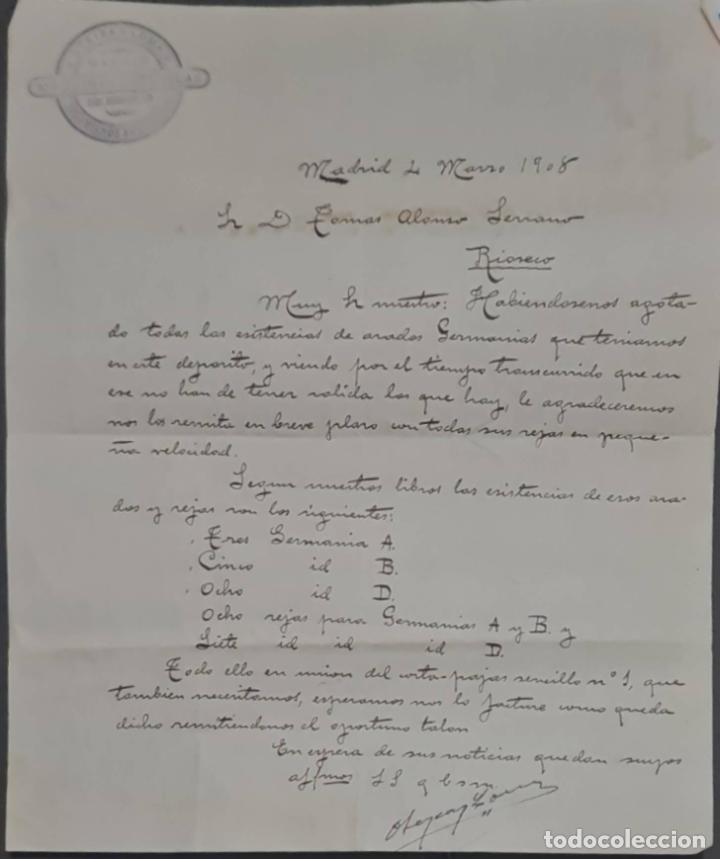 Madrid 4 Marzo 1908
Sr D Tomas Alonso Serrano
Rioseco
Muy Sr nuestro: Habiendosenos agota-
do todas las existencias de arados Germanias que teniamos
en este deposito, y viendo por el tiempo transcurrido que en
ese no han de tener salida los que hay, le agradeceremos
nos los remita en breve plazo con todas sus rejas en peque-
ña velocidad.
Segun nuestros libros las existencias de esos ara-
dos y rejas son los siguientes:
Tres Germania A.
Cinco id B.
Ocho id D.
Ocho rejas para Germanias A y B. y
Siete id id id D.
Todo ello en union del corta-pajas sencillo nº 1, que
tambien necesitamos, esperamos nos lo facture como queda
dicho remitiendonos el oportuno talon
En espera de sus noticias quedan suyos
affmos SS q b s m
todocoleccion.net